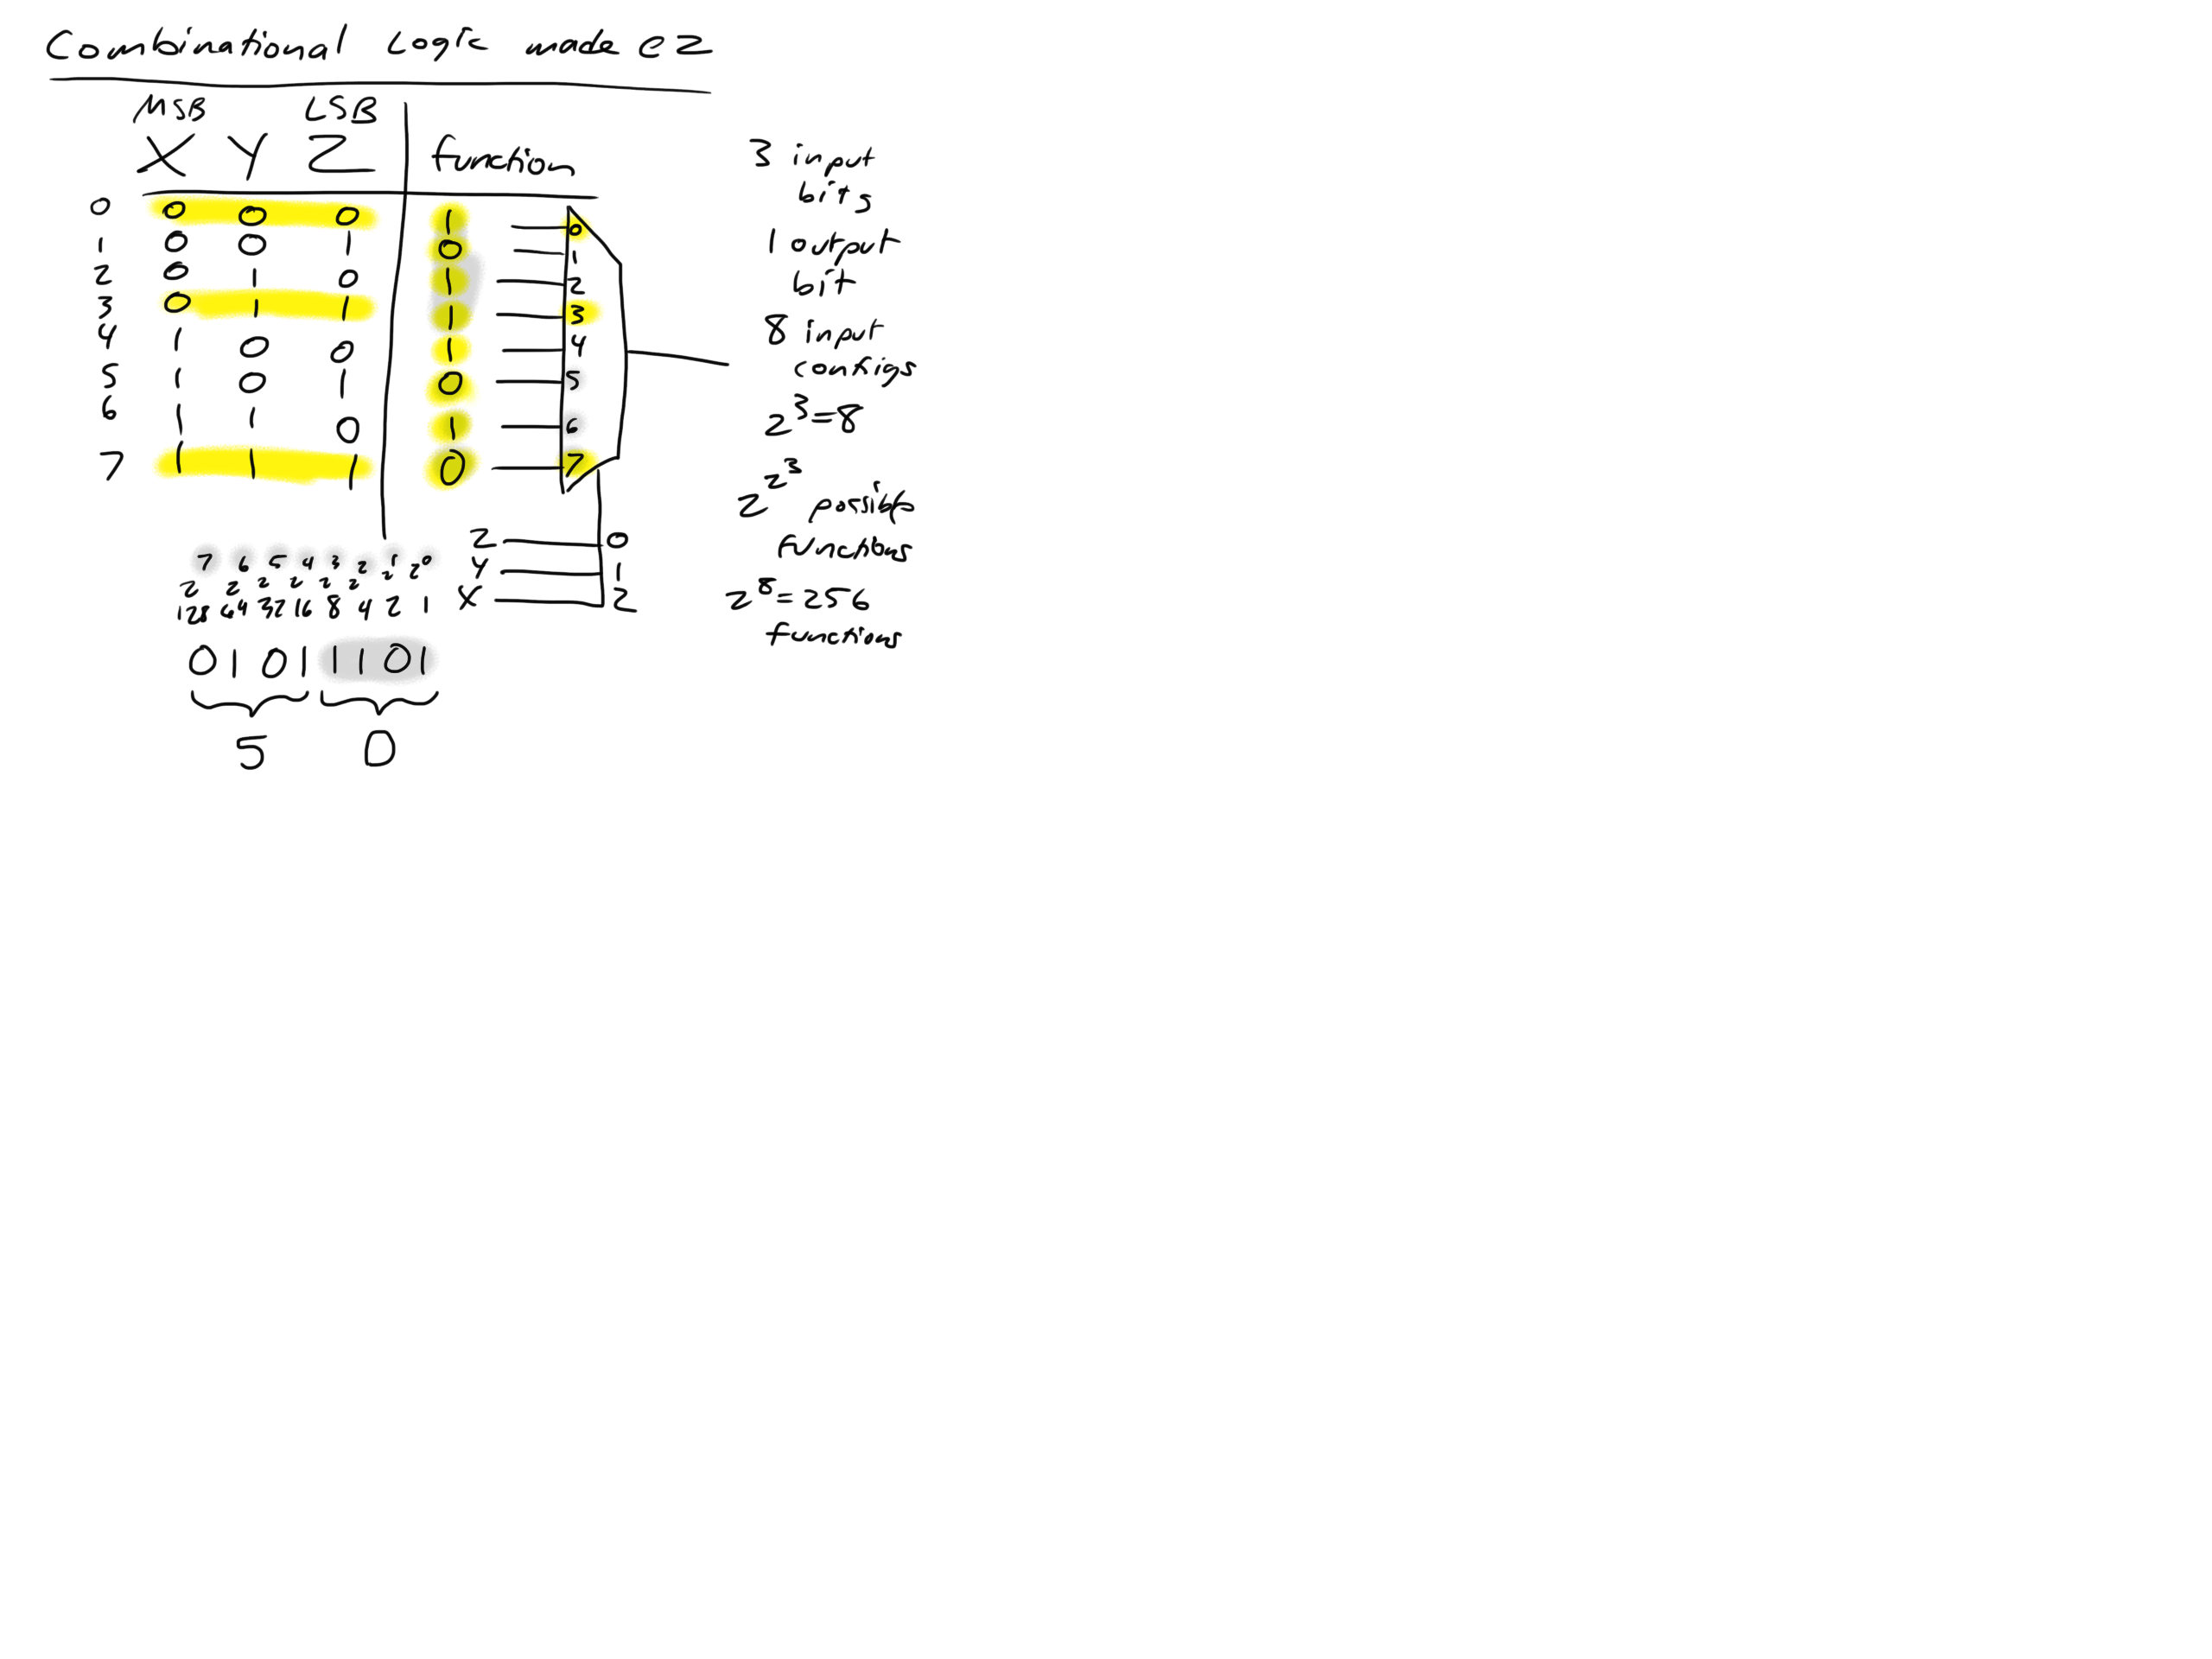 Combinational Logic made ez
MSB LSB
X Y Z function
0 0 0 0 1 0
1 0 0 1 0 1
2 0 1 0 1 2
3 0 1 1 1 3
4 1 0 0 1 4
5 1 0 1 0 5
6 1 1 0 1 6
7 1 1 1 0 7
Z 0
Y 1
X 2
2^7 2^6 2^5 2^4 2^3 2^2 2^1 2^0
128 64 32 16 8 4 2 1
0 1 0 1 1 1 0 1
5 D
3 input
bits
1 output
bit
8 input
configs
2^3=8
2^2^3 possible
functions
2^8=256
functions